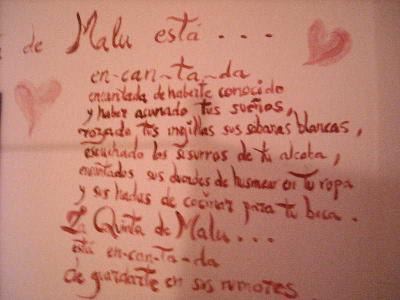 de Malu está . . . .
en-can-ta-da
encantada de haberte conocido
y haber acunado tus sueños,
rozado tus mejillas sus sábanas blancas,
escuchado los susurros de tu alcoba,
encantados sus duendes de husmear en tu ropa
y sus hadas de cocinar para tu boca.
La Quinta de Malu . . .
está en-can-ta-da
de guardarte en sus rumores